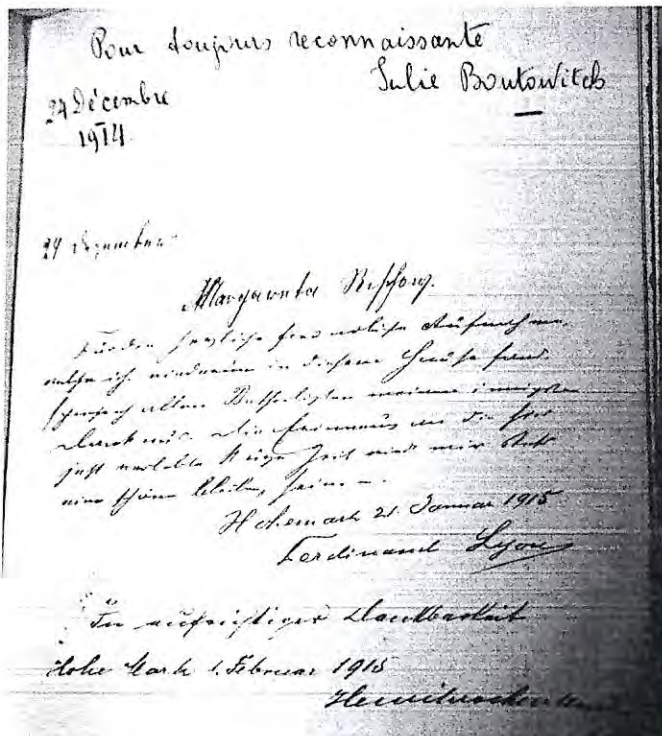 Pour toujours reconnaissante
Julie Boutowitch
24 Décembre
1914.
24 Dezember
Margareta
Für den herzliche freundliche Aufnahme,
welche ich wiederum in diesem Hause fand
spreche ich allen Betheiligten meinen innigsten
Dank aus. Die Erinnerung an die hier
jetzt verlebte kurze Zeit wird mir stets
eine schöne bleiben,
Hohemark 21. Januar 1915
Ferdinand Lyon
In aufrichtiger Dankbarkeit
Hohe Mark 1. Februar 1915